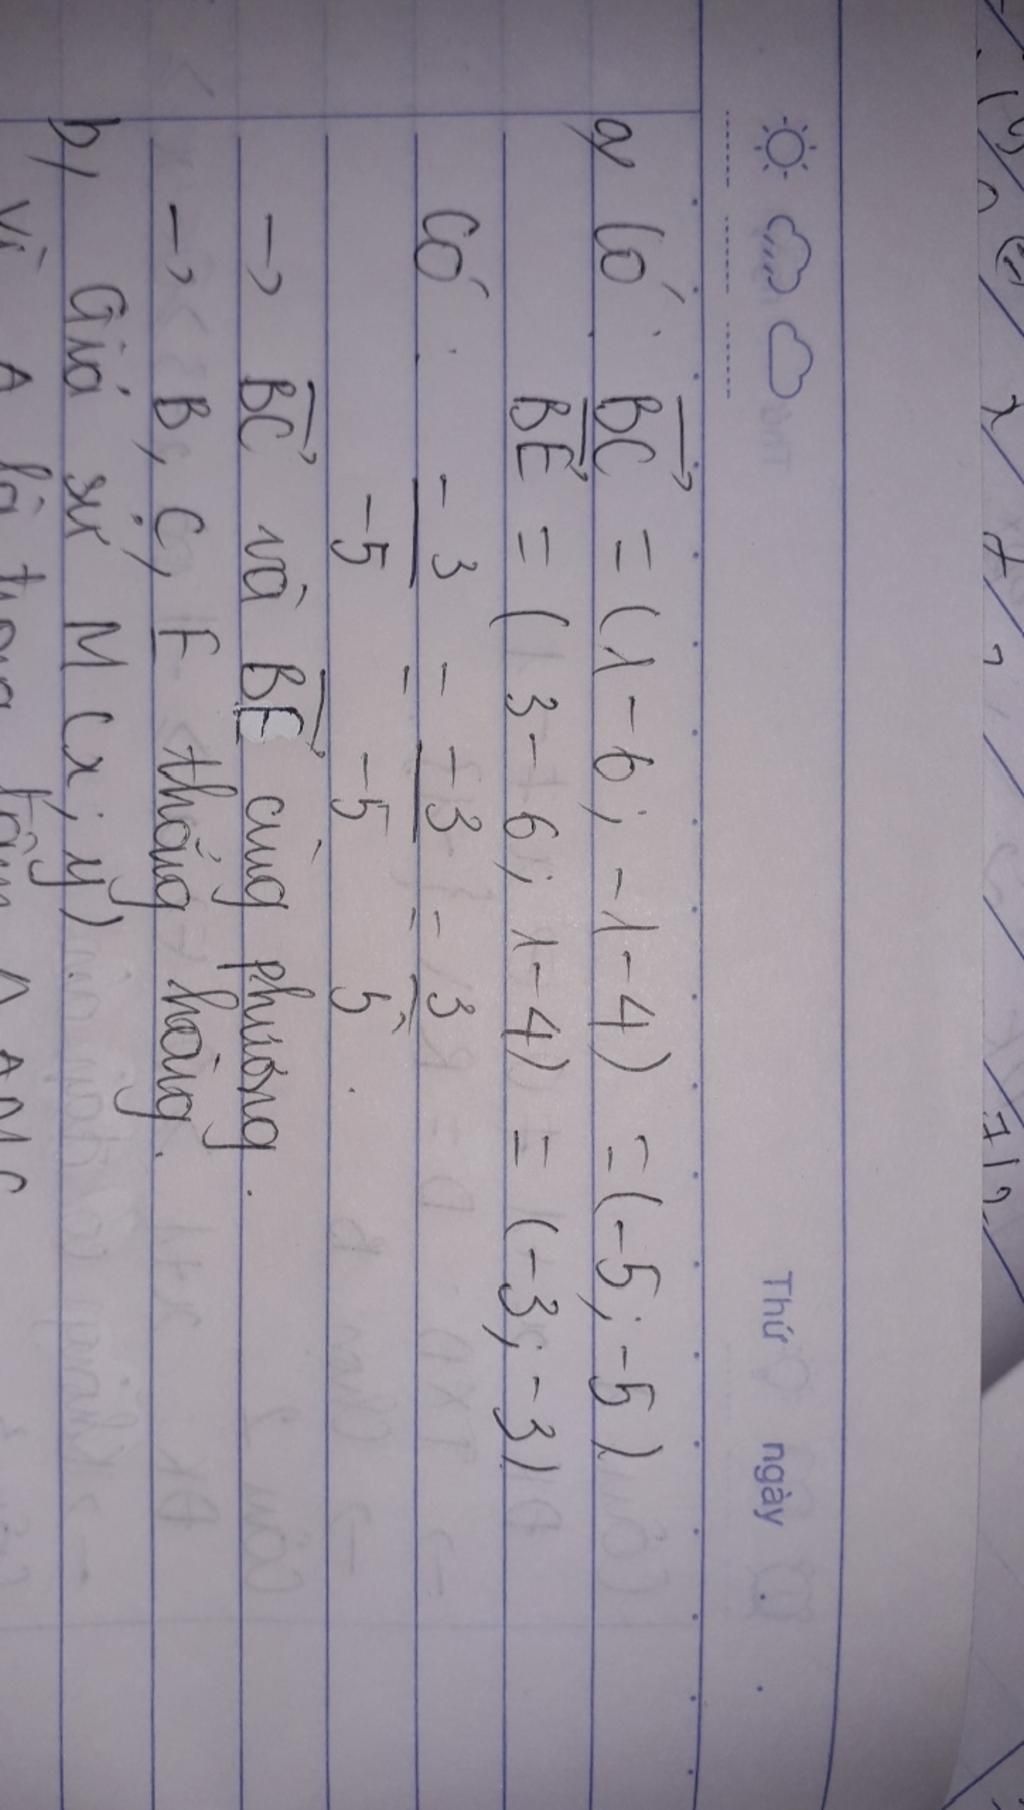 Thứ ngày
a) Có: BC = (1-6; -1-4) = (-5; -5)
BE = (3-6; 1-4) = (-3; -3)
Có: -3/-5 = -3/-5 = 3/5.
→ BC và BE cùng phương.
→ B, C, E thẳng hàng.
b) Giả sử M(x; y)
Vì A là trọng tâm Δ AMC